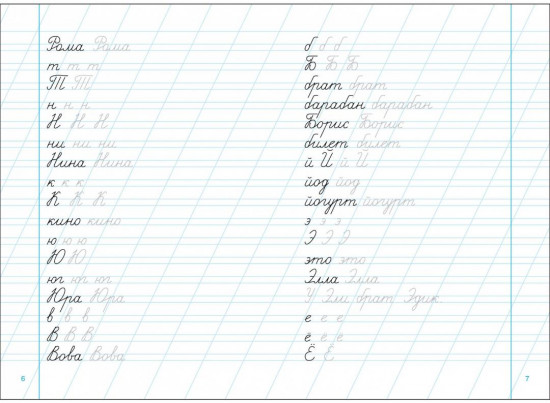 Рома Рома
т т т
Т Т
н н н
Н Н Н
ни ни ни
Нина Нина
к к к
К К К
кино кино
ю ю ю
Ю Ю
юг юг юг
Юра Юра
в в в
В В В
Вова Вова
6
б б б
Б Б Б
брат брат
барабан барабан
Борис Борис
билет билет
й Й й Й
йод йод
йогурт йогурт
э э э
Э Э Э
это это
Элла Элла
У Эли брат Эдик
е е е
ё ё ё
Ё Ё
7